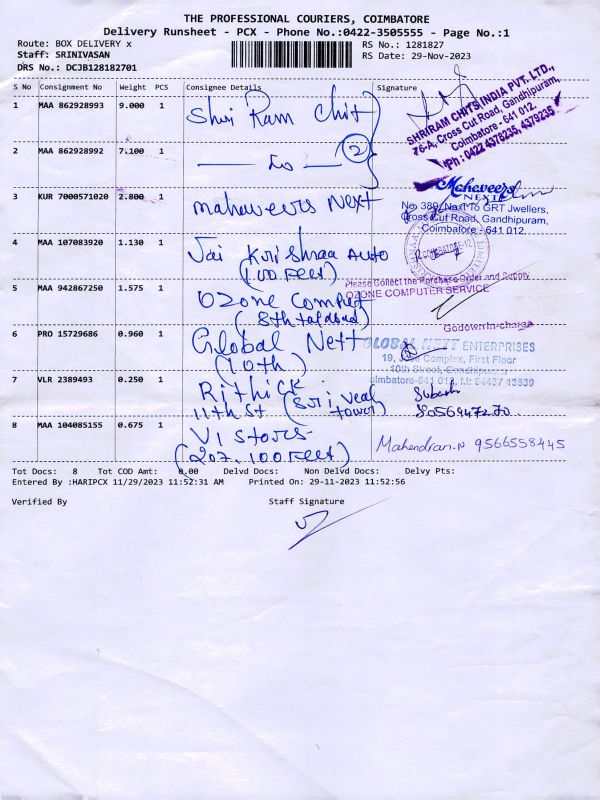 THE PROFESSIONAL COURIERS, COIMBATORE
Delivery Runsheet - PCX - Phone No.:0422-3505555 - Page No.:1
Route: BOX DELIVERY x RS No.: 1281827
Staff: SRINIVASAN RS Date: 29-Nov-2023
DRS No.: DCJB128182701
S No Consignment No Weight PCS Consignee Details Signature
1 MAA 862928993 9.000 1 Shri Ram Chit
SHRIRAM CHITS INDIA PVT. LTD.,
76-A, Cross Cut Road, Gandhipuram,
Coimbatore - 641 012.
Ph: 0422 4378235, 4379235
2 MAA 862928992 7.100 1 — Do — 2
3 KUR 7000571020 2.800 1 Mahaveers Next
Mahaveers
NEXT
No. 389, Next To GRT Jwellers,
Cross Cut Road, Gandhipuram,
Coimbatore - 641 012.
4 MAA 107083920 1.130 1 Jai Krishnaa Auto
(100 Feet)
5 MAA 942867250 1.575 1 Ozone Comput
Please Collect the Purchase Order and Supply
OZONE COMPUTER SERVICE
Godown In-charge
6 PRO 15729686 0.960 1 Global Nett
(10th)
GLOBAL NETT ENTERPRISES
19, Complex, First Floor
10th Street, Gandhipuram
oimbatore-641 012, M: 94437 13539
7 VLR 2389493 0.250 1 Rithick
11th St (Sri Veal
Tower)
Subash
8056947270
8 MAA 104085155 0.675 1 VI Stores
(207, 100 Feet)
Mahendiran.N 9566558445
Tot Docs: 8 Tot COD Amt: 0.00 Delvd Docs: Non Delvd Docs: Delvy Pts:
Entered By :HARIPCX 11/29/2023 11:52:31 AM Printed On: 29-11-2023 11:52:56
Verified By Staff Signature